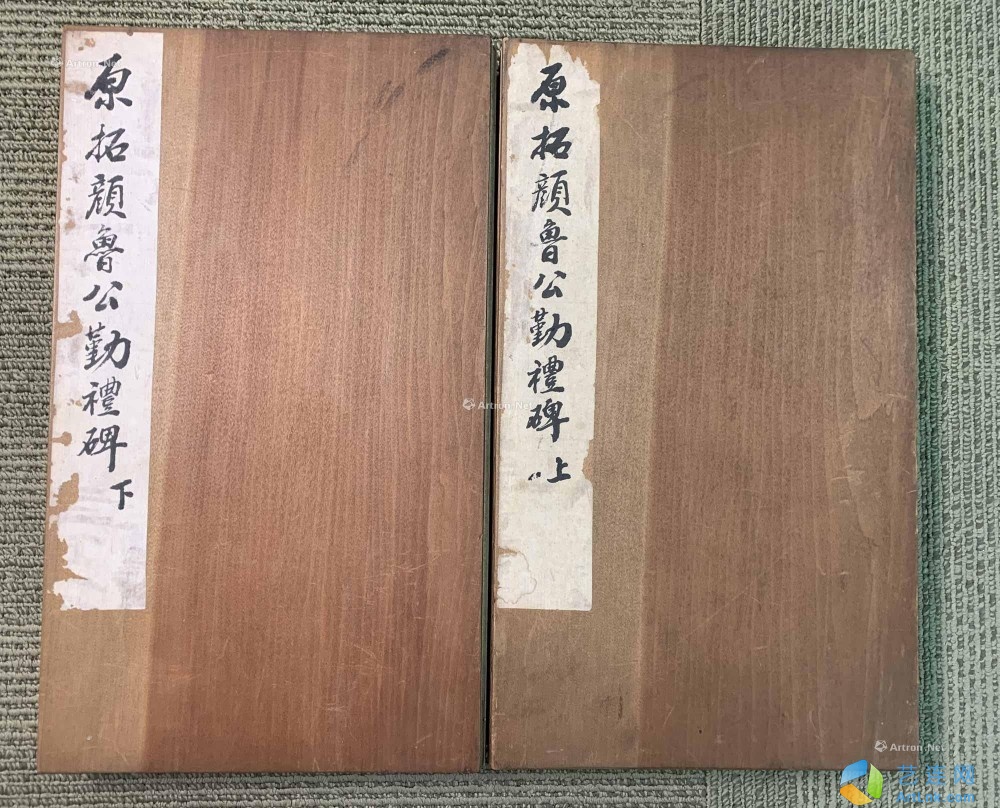 原拓顔魯公勤禮碑 上
原拓顔魯公勤禮碑 下
Artron.Net
Artron.Net
Artron.Net